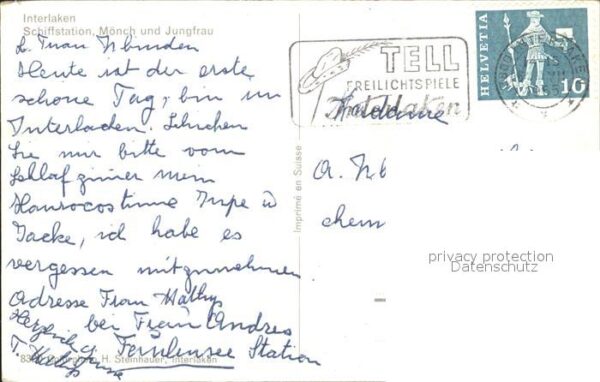 Interlaken
Schiffstation, Mönch und Jungfrau
L. Frau
Heute ist der erste
schöne Tag, bin in
Interlaken. Schicken
Sie mir bitte vom
Schlafzimmer mein
Jupe u
Jacke, ich habe es
vergessen mitzunehmen
Adresse Frau Mathys
bei Frau Andres
Station
Herzlich
H. Steinhauer, Interlaken
Imprimé en Suisse
TELL
FREILICHTSPIELE
Interlaken
HELVETIA
10
Madame
A. N
chem
privacy protection
Datenschutz